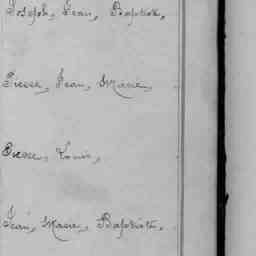 Joseph, Jean, Baptiste,
Pierre, Jean, Marie,
Pierre, Louis,
Jean, Marie, Baptiste,